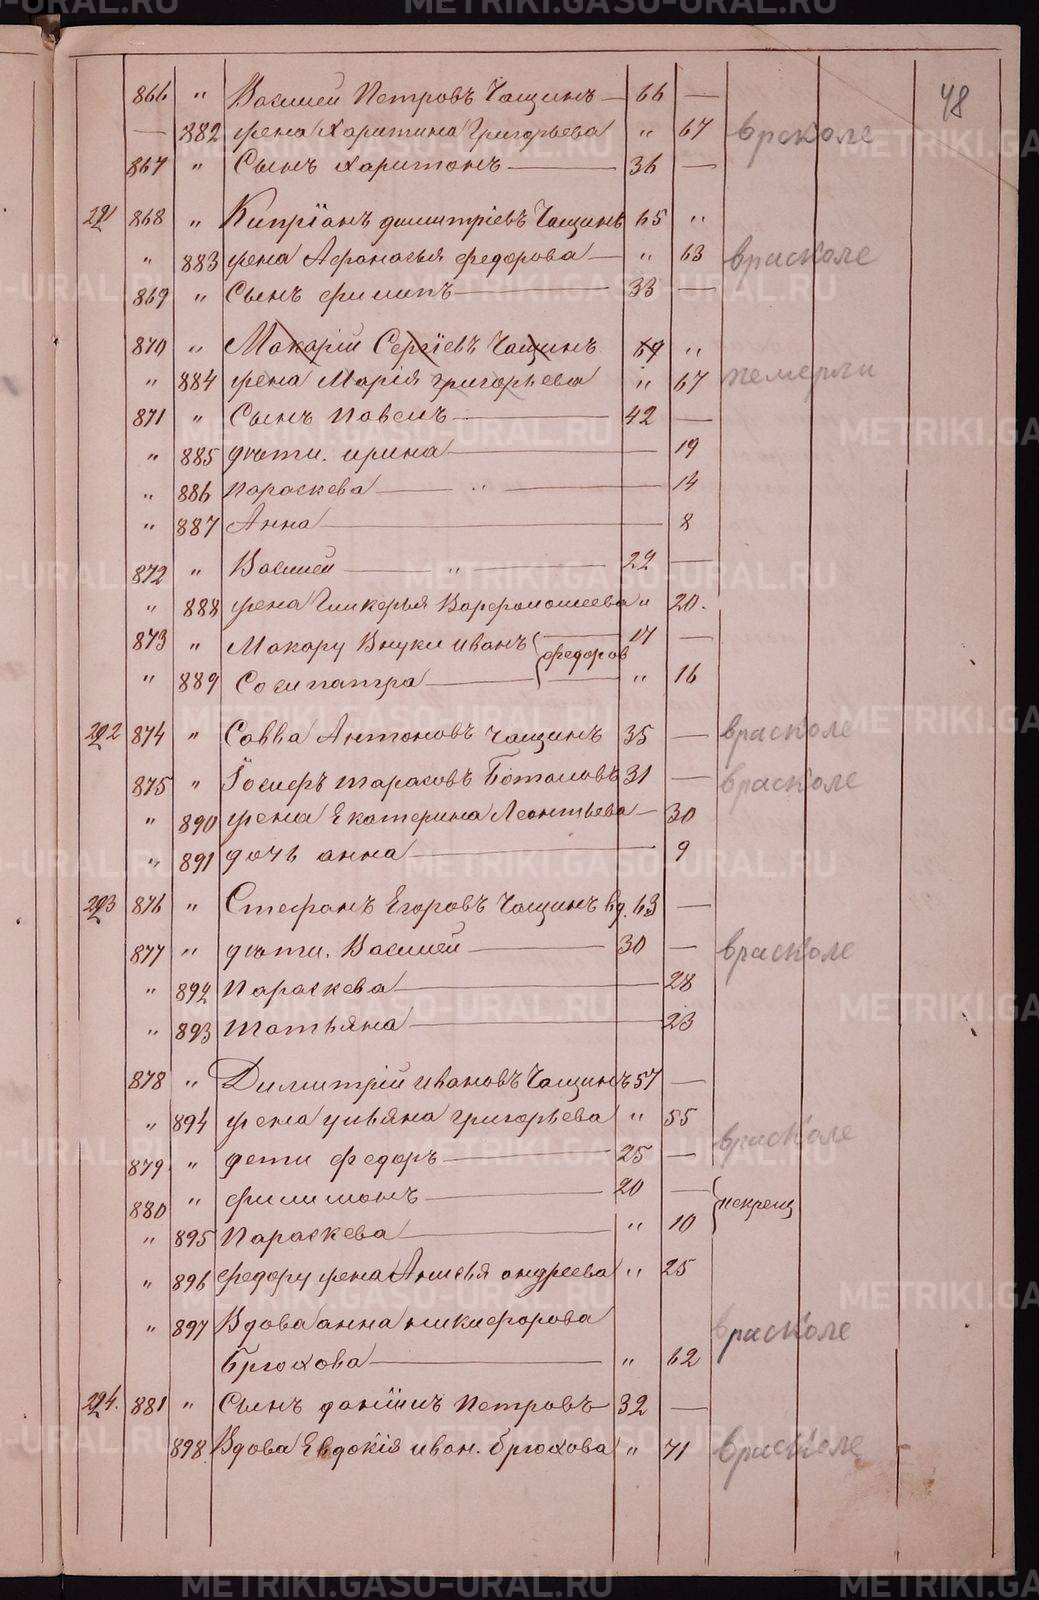 48
866 " Василий Петровъ Чащинъ — 66 —
— 882 жена Харитина Григорьева " 67 врасколе
867 " Сынъ Харитонъ — 36 —
291 868 " Кипріанъ Димитріевъ Чащинъ 65 "
" 883 жена Афанасья Федорова — " 63 врасколе
869 " Сынъ Филипъ — 33 —
870 " Макарій Сергіевъ Чащинъ 69 "
" 884 жена Марія Григорьева " 67 померли
871 " Сынъ Павелъ — 42 —
" 885 дѣти. Ирина — 19
" 886 Параскева — " — 14
" 887 Анна — 8
872 " Василий — " — 22 —
" 888 жена Гликерья Варфоломеева " 20.
873 " Макару Внуки Иванъ — 17 —
Федоров
" 889 Сосипатра — " 16
292 874 " Савва Антоновъ Чащинъ 35 — врасколе
875 " Іосифъ Тарасовъ Боталовъ 31 — врасколе
" 890 жена Екатерина Леонтьева — 30
" 891 дочь анна — 9
293 876 " Стефанъ Егоровъ Чащинъ вд. 63 —
877 " дѣти. Василий — 30 — врасколе
" 892 Параскева — 28
" 893 Татьяна — 23
878 " Димитрій Ивановъ Чащинъ 57 —
" 894 жена ульяна Григорьева " 55 врасколе
879 " дети Федоръ — 25 —
880 " Филимонъ — 20 —
некрещ
" 895 Параскева — " 10
" 896 Федору жена Анисья андреева " 25
" 897 Вдова анна никифорова врасколе
Брюхова — " 62
294. 881 " Сынъ даніилъ Петровъ 32 —
898 Вдова Евдокія иван. Брюхова " 71 врасколе
METRIKI.GASO-URAL.RU